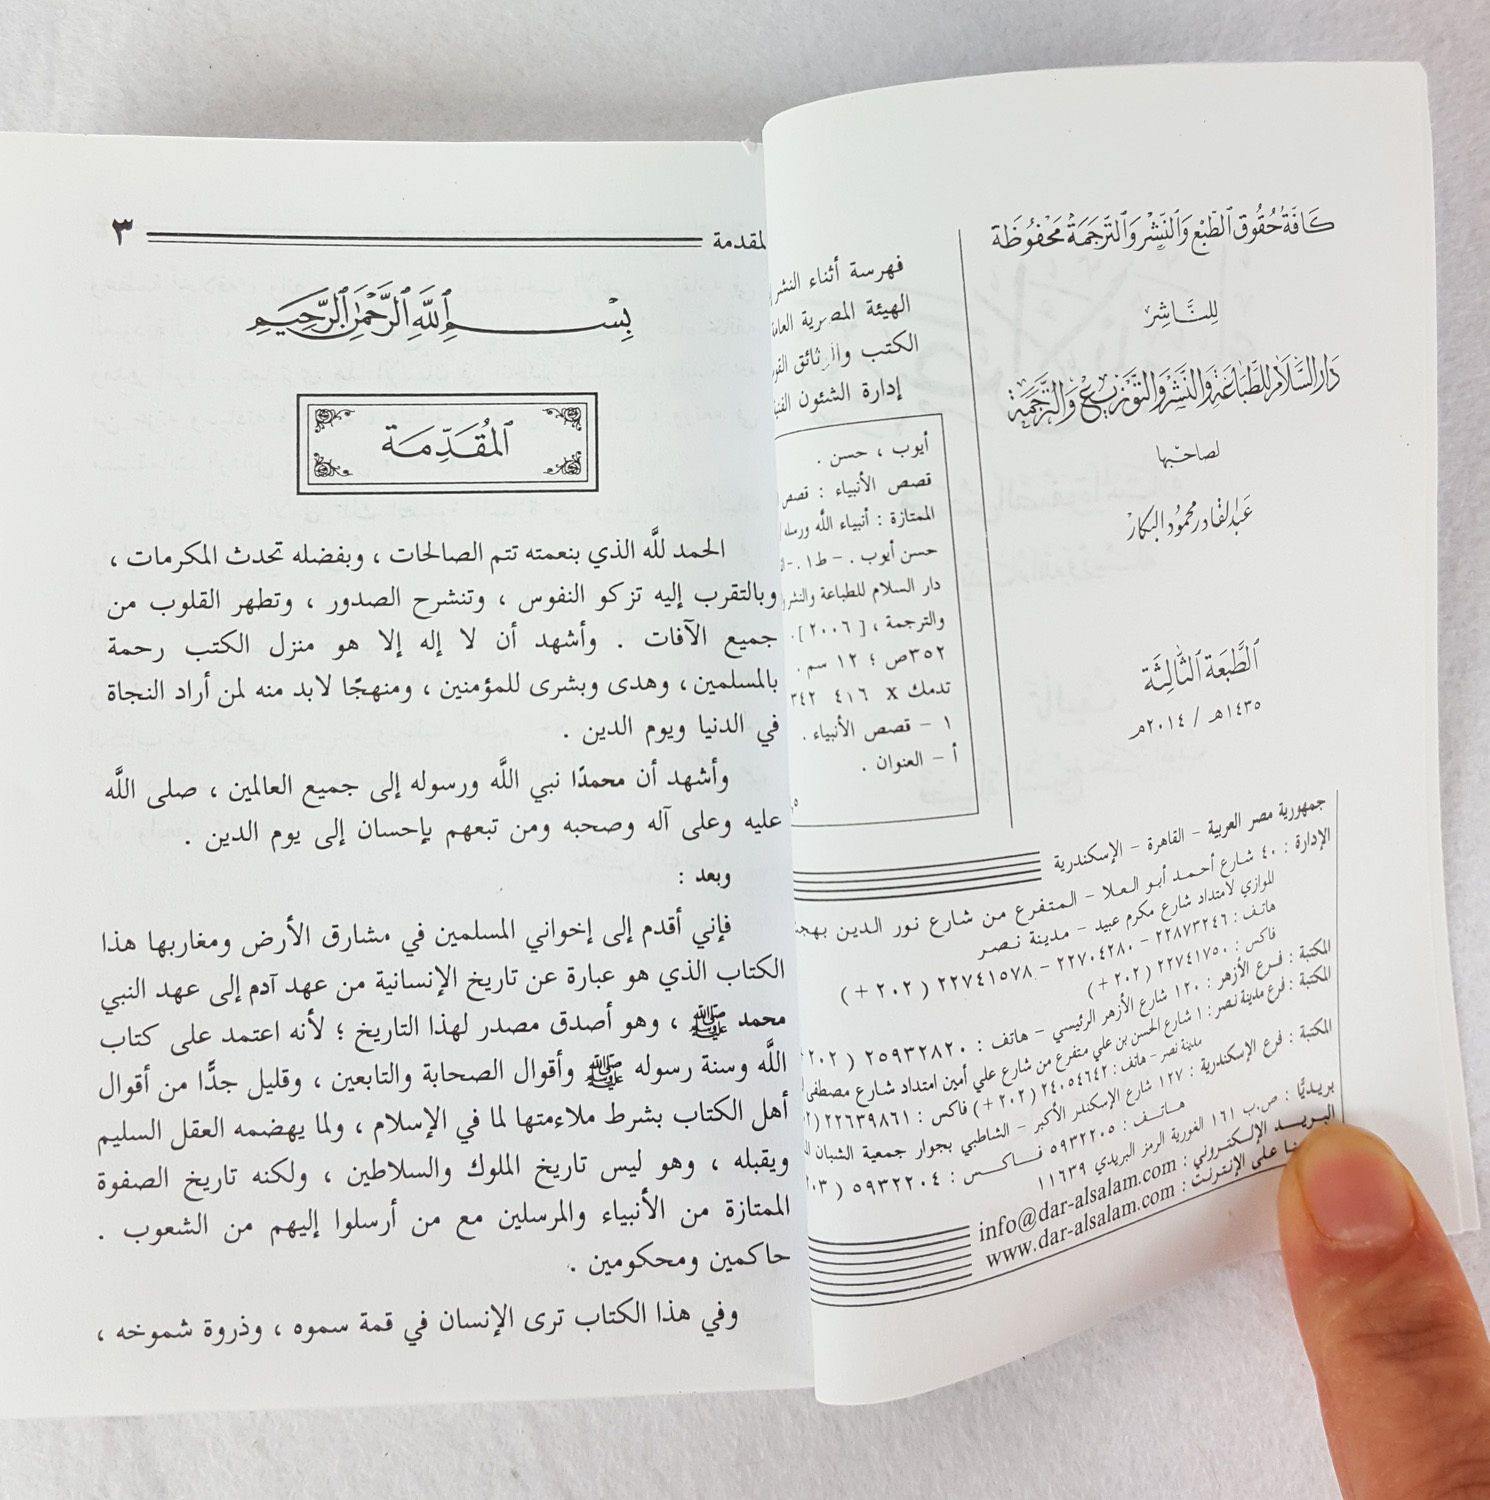 كَافَّةُ حُقُوقِ الطَّبْعِ وَالنَّشْرِ وَالتَّرْجَمَةِ مَحْفُوظَة
لِلنَّاشِر
دَارُ السَّلَام لِلطِّبَاعَةِ وَالنَّشْرِ وَالتَّوْزِيعِ وَالتَّرْجَمَة
لصاحبها
عبدالقادر محمود البكار
الطَّبعَة الثَّالِثَة
١٤٣٥هـ / ٢٠١٤م
فهرسة أثناء النشر
الهيئة المصرية العامة
الكتب والوثائق القو
إدارة الشئون الفنية
أيوب ، حسن .
قصص الأنبياء : قصص
الممتازة : أنبياء اللَّه ورسله
حسن أيوب . - ط١ . -
دار السلام للطباعة والنشر
والترجمة ، [ ٢٠٠٦ ] .
٣٥٢ص ؛ ١٢ سم .
تدمك X ٤١٦ ٣٤٢
١ - قصص الأنبياء .
أ - العنوان .
جمهورية مصر العربية - القاهرة - الإسكندرية
الإدارة : ٤٠ شارع أحمد أبو العلا - المتفرع من شارع نور الدين بهجت
الموازي لامتداد شارع مكرم عبيد - مدينة نصر
هاتف : ٢٢٨٧٣٢٤٦ - ٢٢٧٠٤٢٨٠ - ٢٢٧٤١٥٧٨ ( ٢٠٢ + )
فاكس : ٢٢٧٤١٧٥٠ ( ٢٠٢ + )
المكتبة : فرع الأزهر : ١٢٠ شارع الأزهر الرئيسي - هاتف : ٢٥٩٣٢٨٢٠ ( ٢٠٢
المكتبة : فرع مدينة نصر : ١ شارع الحسن بن علي متفرع من شارع علي أمين امتداد شارع مصطفى
مدينة نصر - هاتف : ٢٤٠٥٤٦٤٢ ( ٢٠٢ + ) فاكس : ٢٢٦٣٩٨٦١
المكتبة : فرع الإسكندرية : ١٢٧ شارع الإسكندر الأكبر - الشاطبي بجوار جمعية الشبان
هاتف : ٥٩٣٢٢٠٥ فاكس : ٥٩٣٢٢٠٤ ( ٢٠٣
بريديًّا : ص.ب ١٦١ الغورية الرمز البريدي ١١٦٣٩
البريد الإلكتروني : info@dar-alsalam.com
على الإنترنت : www.dar-alsalam.com
المقدمة ٣
بِسْمِ اللَّهِ الرَّحْمَٰنِ الرَّحِيمِ
المُقَدِّمَة
الحمد للَّه الذي بنعمته تتم الصالحات ، وبفضله تحدث المكرمات ،
وبالتقرب إليه تزكو النفوس ، وتنشرح الصدور ، وتطهر القلوب من
جميع الآفات . وأشهد أن لا إله إلا هو منزل الكتب رحمة
بالمسلمين ، وهدى وبشرى للمؤمنين ، ومنهجًا لابد منه لمن أراد النجاة
في الدنيا ويوم الدين .
وأشهد أن محمدًا نبي اللَّه ورسوله إلى جميع العالمين ، صلى اللَّه
عليه وعلى آله وصحبه ومن تبعهم بإحسان إلى يوم الدين .
وبعد :
فإني أقدم إلى إخواني المسلمين في مشارق الأرض ومغاربها هذا
الكتاب الذي هو عبارة عن تاريخ الإنسانية من عهد آدم إلى عهد النبي
محمد ﷺ ، وهو أصدق مصدر لهذا التاريخ ؛ لأنه اعتمد على كتاب
اللَّه وسنة رسوله ﷺ وأقوال الصحابة والتابعين ، وقليل جدًّا من أقوال
أهل الكتاب بشرط ملاءمتها لما في الإسلام ، ولما يهضمه العقل السليم
ويقبله ، وهو ليس تاريخ الملوك والسلاطين ، ولكنه تاريخ الصفوة
الممتازة من الأنبياء والمرسلين مع من أرسلوا إليهم من الشعوب .
حاكمين ومحكومين .
وفي هذا الكتاب ترى الإنسان في قمة سموه ، وذروة شموخه ،